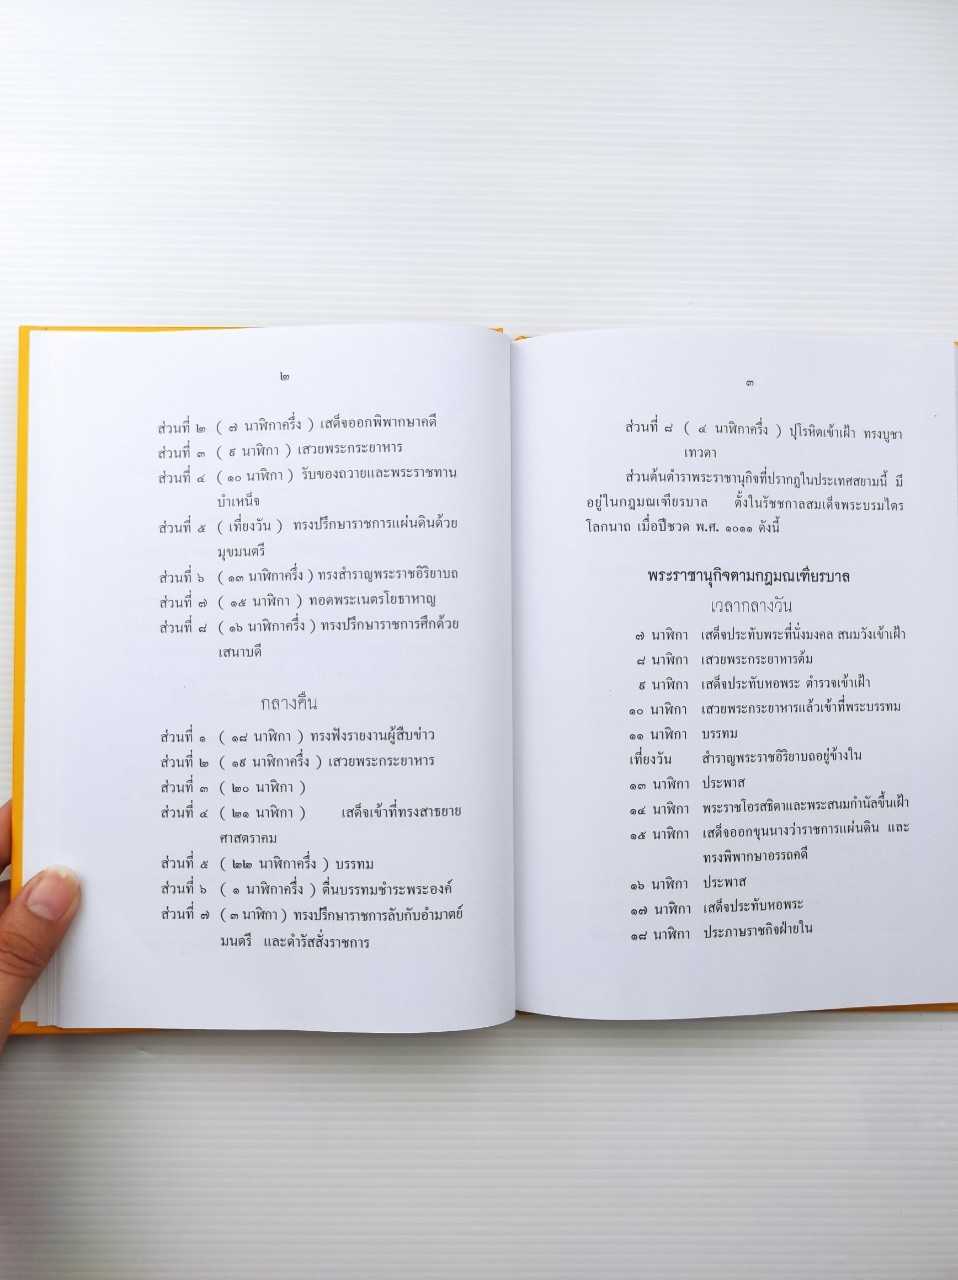 ๒
ส่วนที่ ๒ ( ๗ นาฬิกาครึ่ง ) เสด็จออกพิพากษาคดี
ส่วนที่ ๓ ( ๙ นาฬิกา ) เสวยพระกระยาหาร
ส่วนที่ ๔ ( ๑๐ นาฬิกา ) รับของถวายและพระราชทาน
บำเหน็จ
ส่วนที่ ๕ ( เที่ยงวัน ) ทรงปรึกษาราชการแผ่นดินด้วย
มุขมนตรี
ส่วนที่ ๖ ( ๑๓ นาฬิกาครึ่ง ) ทรงสำราญพระราชอิริยาบถ
ส่วนที่ ๗ ( ๑๕ นาฬิกา ) ทอดพระเนตรโยธาหาญ
ส่วนที่ ๘ ( ๑๖ นาฬิกาครึ่ง ) ทรงปรึกษาราชการศึกด้วย
เสนาบดี
กลางคืน
ส่วนที่ ๑ ( ๑๘ นาฬิกา ) ทรงฟังรายงานผู้สืบข่าว
ส่วนที่ ๒ ( ๑๙ นาฬิกาครึ่ง ) เสวยพระกระยาหาร
ส่วนที่ ๓ ( ๒๐ นาฬิกา )
ส่วนที่ ๔ ( ๒๑ นาฬิกา ) เสด็จเข้าที่ทรงสาธยาย
ศาสตราคม
ส่วนที่ ๕ ( ๒๒ นาฬิกาครึ่ง ) บรรทม
ส่วนที่ ๖ ( ๑ นาฬิกาครึ่ง ) ตื่นบรรทมชำระพระองค์
ส่วนที่ ๗ ( ๓ นาฬิกา ) ทรงปรึกษาราชการลับกับอำมาตย์
มนตรี และดำรัสสั่งราชการ
๓
ส่วนที่ ๘ ( ๔ นาฬิกาครึ่ง ) ปุโรหิตเข้าเฝ้า ทรงบูชา
เทวดา
ส่วนต้นตำราพระราชานุกิจที่ปรากฏในประเทศสยามนี้ มี
อยู่ในกฎมณเฑียรบาล ตั้งในรัชชกาลสมเด็จพระบรมไตร
โลกนาถ เมื่อปีชวด พ.ศ. ๑๐๑๑ ดังนี้
พระราชานุกิจตามกฎมณเฑียรบาล
เวลากลางวัน
๗ นาฬิกา เสด็จประทับพระที่นั่งมงคล สนมวังเข้าเฝ้า
๘ นาฬิกา เสวยพระกระยาหารต้ม
๙ นาฬิกา เสด็จประทับหอพระ ตำรวจเข้าเฝ้า
๑๐ นาฬิกา เสวยพระกระยาหารแล้วเข้าที่พระบรรทม
๑๑ นาฬิกา บรรทม
เที่ยงวัน สำราญพระราชอิริยาบถอยู่ข้างใน
๑๓ นาฬิกา ประพาส
๑๔ นาฬิกา พระราชโอรสธิดาและพระสนมกำนัลขึ้นเฝ้า
๑๕ นาฬิกา เสด็จออกขุนนางว่าราชการแผ่นดิน และ
ทรงพิพากษาอรรถคดี
๑๖ นาฬิกา ประพาส
๑๗ นาฬิกา เสด็จประทับหอพระ
๑๘ นาฬิกา ประภาษราชกิจฝ่ายใน